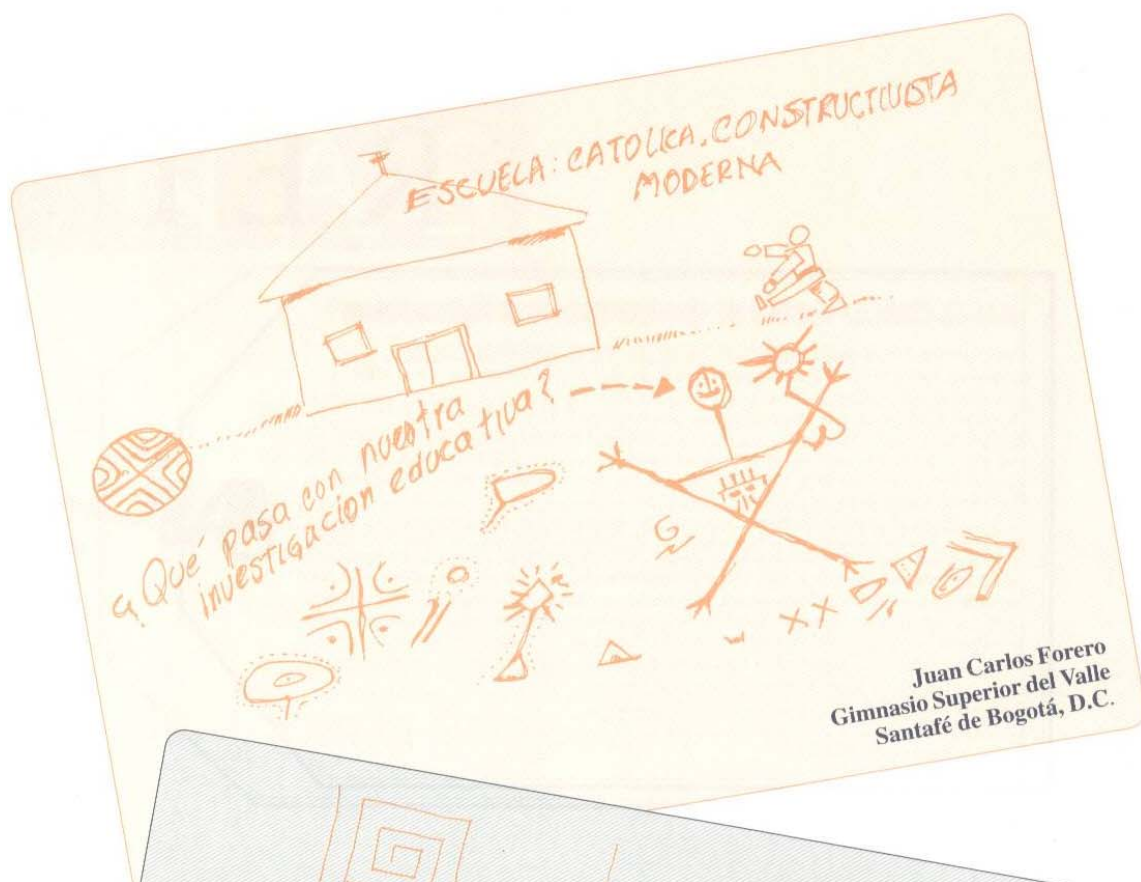 ESCUELA: CATOLICA, CONSTRUCTIVISTA
MODERNA
¿Qué pasa con nuestra
investigacion educativa?
G
XX
Juan Carlos Forero
Gimnasio Superior del Valle
Santafé de Bogotá, D.C.